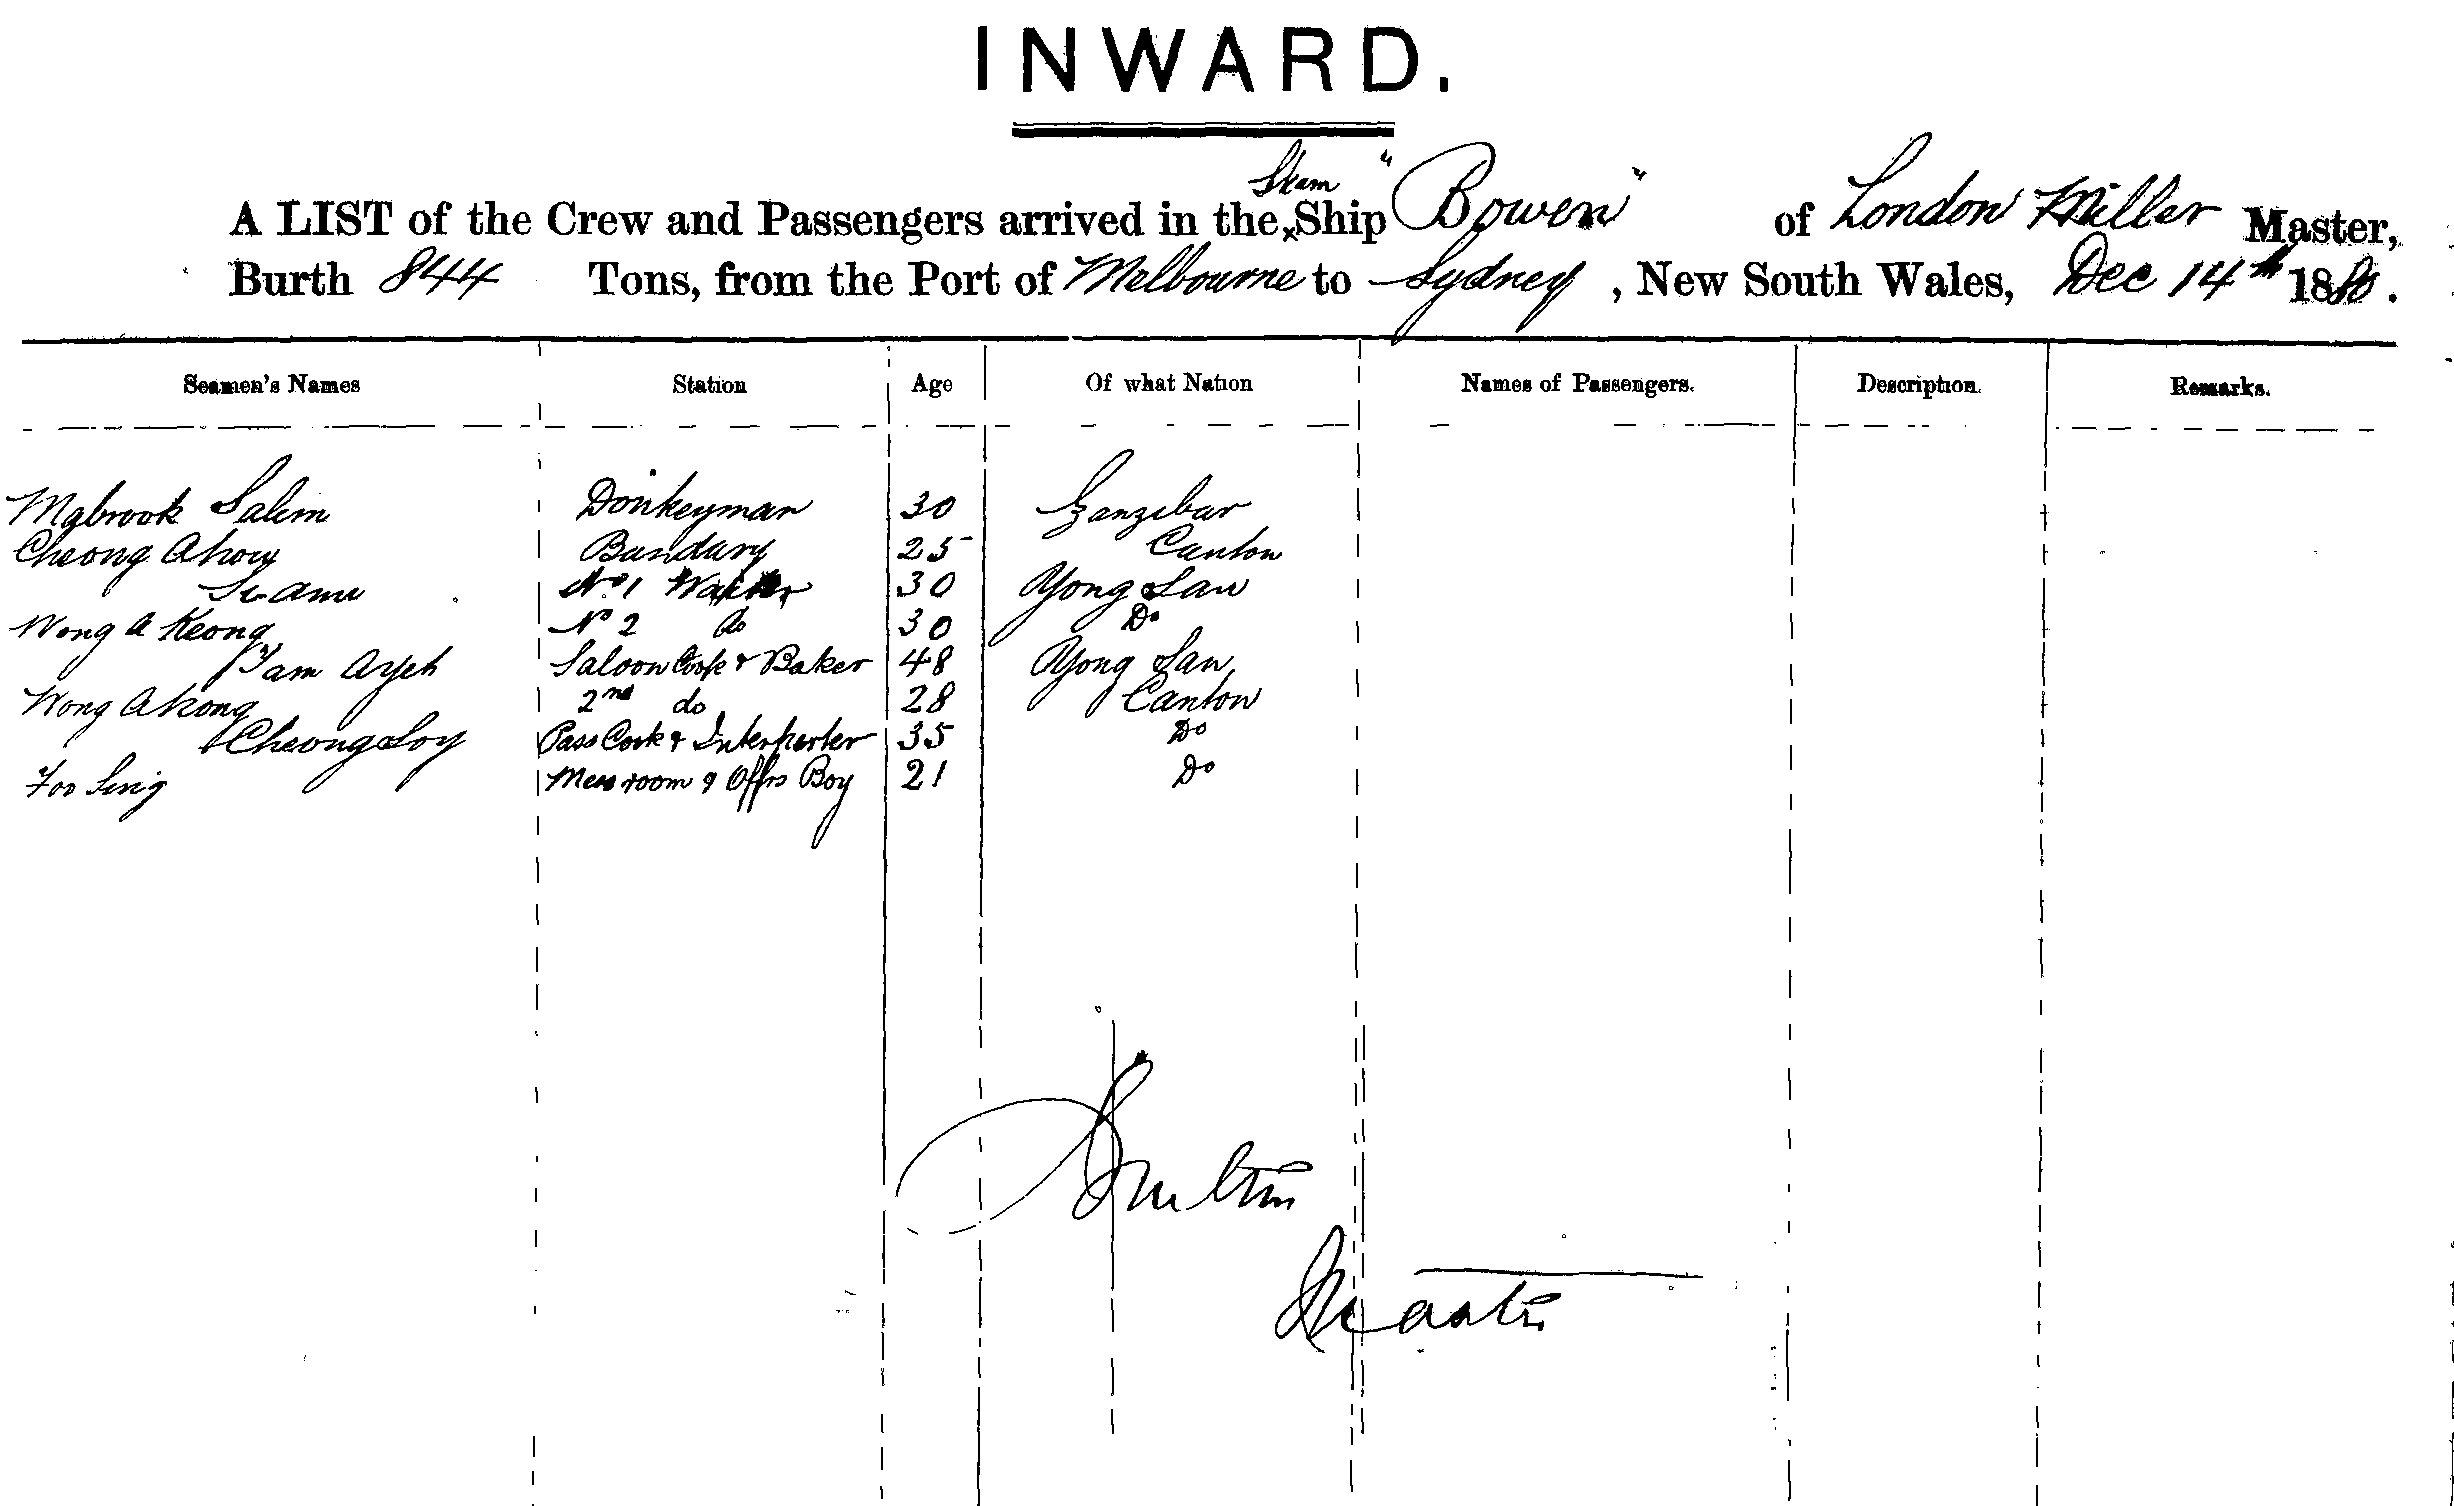 INWARD.
A LIST of the Crew and Passengers arrived in the Steam Ship "Bowen" of London Miller Master,
Burth 844 Tons, from the Port of Melbourne to Sydney, New South Wales, Dec 14th 1880.
Seamen's Names Station Age Of what Nation Names of Passengers. Description. Remarks.
Mabrook Salim Donkeyman 30 Zanzibar
Cheong Ahoy Bandary 25 Canton
No 1 Waiter 30 Yong San
Wong A Keong No 2 do 30 Do
Yam Ayeh Saloon Cook & Baker 48 Yong San
Wong Akong 2nd do 28 Canton
Cheong Loy Pass Cook & Interperter 35 Do
Foo Sing Mess room & Offrs Boy 21 Do
Master